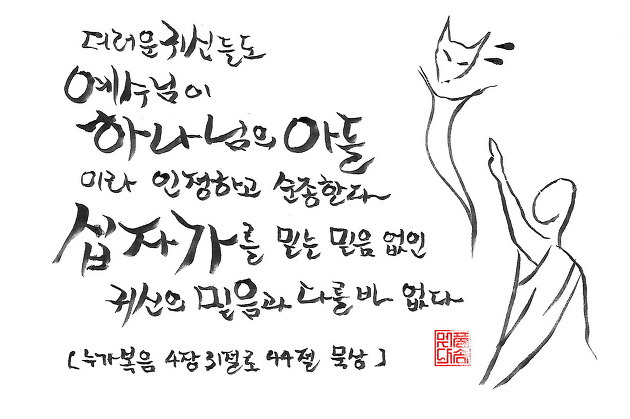 더러운 귀신들도
예수님이
하나님의 아들
이라 인정하고 순종한다
십자가를 믿는 믿음 없인
귀신의 믿음과 다를 바 없다
[누가복음 4장 31절로 44절 묵상]